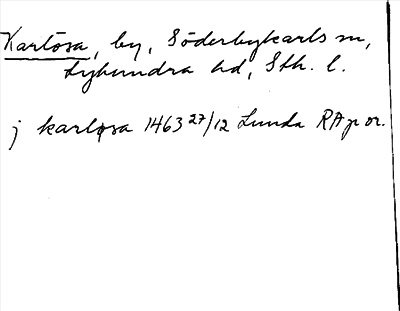 Karlösa, by, Söderbykarls sn,
Lyhundra hd, Sth. l.
j karløsa 1463 27/12 Lunda RAp or.